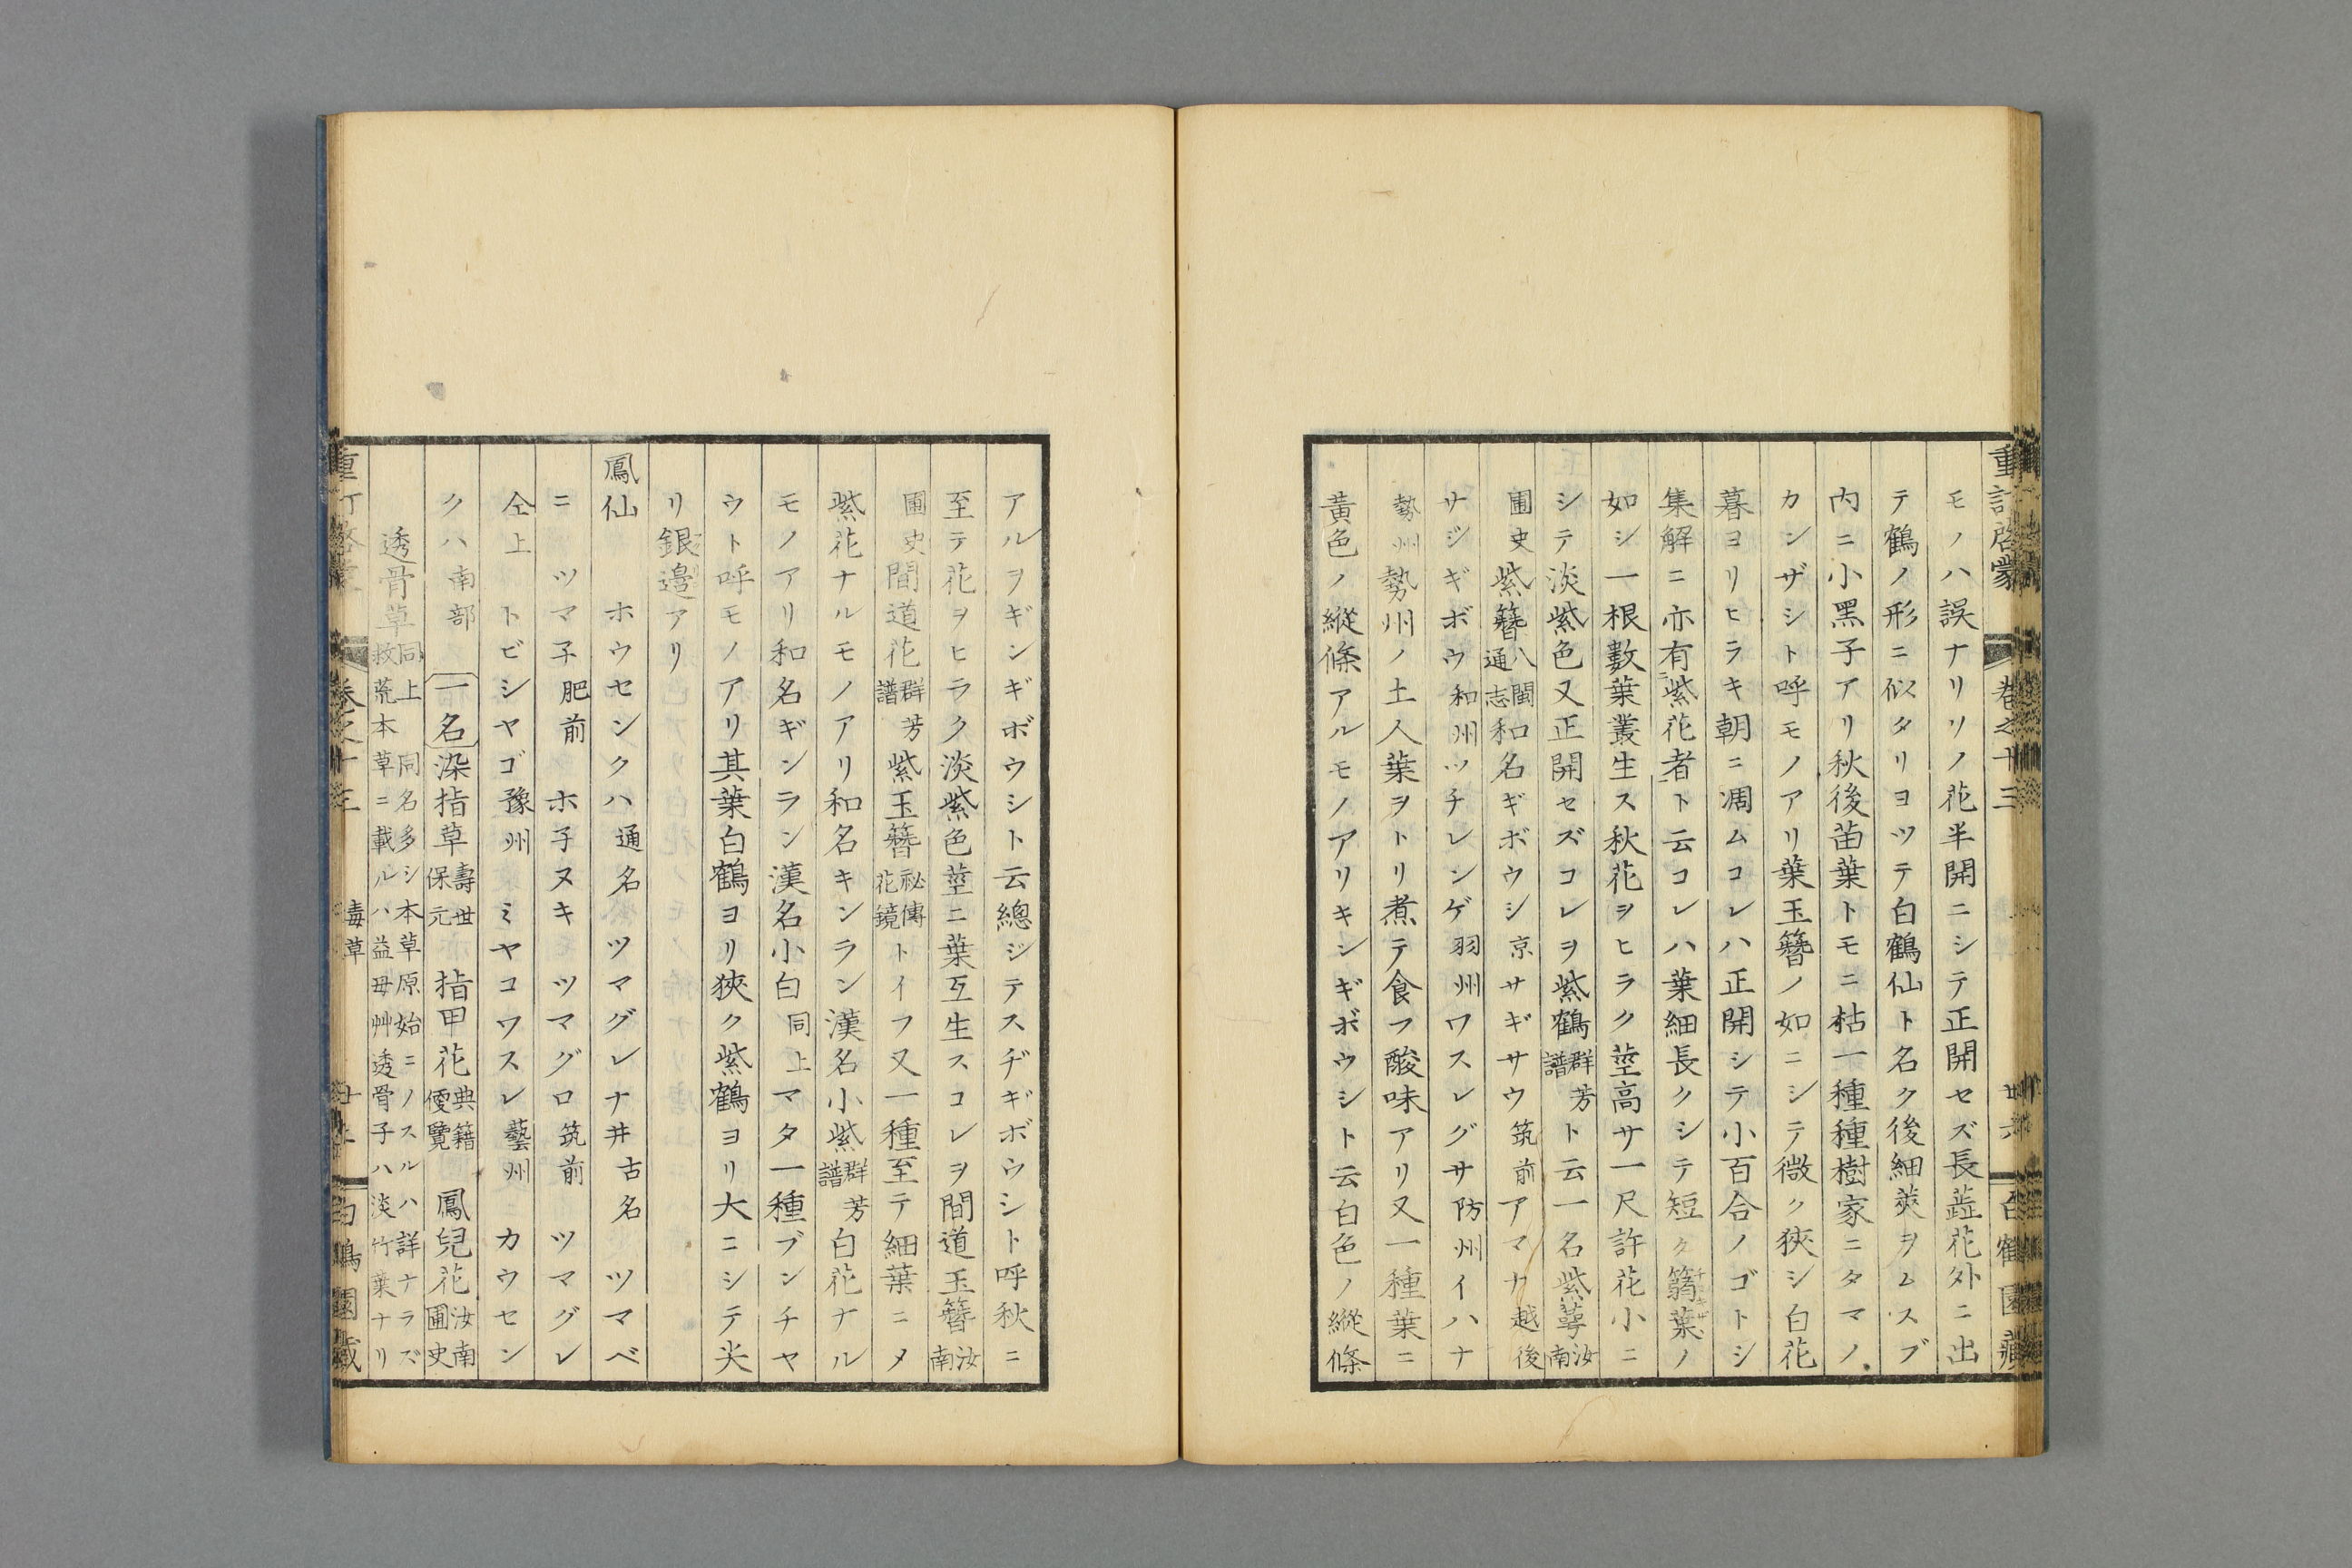 重訂啓蒙 卷之十三 廿六 白鶴園藏
モノハ誤ナリソノ花半開ニシテ正開セズ長蕋花外ニ出
テ鶴ノ形ニ似タリヨツテ白鶴仙ト名ク後細莢ヲムスブ
内ニ小黒子アリ秋後苗葉トモニ枯一種種樹家ニタマノ
カンザシト呼モノアリ葉玉簪ノ如ニシテ微ク狹シ白花
暮ヨリヒラキ朝ニ凋ムコレハ正開シテ小百合ノゴトシ
集解ニ亦有紫花者ト云コレハ葉細長クシテ短ク篛葉ノ
如シ一根數葉叢生ス秋花ヲヒラク莖高サ一尺許花小ニ
シテ淡紫色又正開セズコレヲ紫鶴群芳譜ト云一名紫萼汝南
圃史紫簪八閩通志和名ギボウシ京サギサウ筑前アマナ越後
サジギボウ和州ツチレンゲ羽州ワスレグサ防州イハナ
勢州勢州ノ土人葉ヲトリ煮テ食フ酸味アリ又一種葉ニ
黃色ノ縱條アルモノアリキンギボウシト云白色ノ縱條
アルヲギンギボウシト云總ジテスヂギボウシト呼秋ニ
至テ花ヲヒラク淡紫色莖ニ葉互生スコレヲ間道玉簪汝南
圃史間道花群芳譜紫玉簪祕傳花鏡トイフ又一種至テ細葉ニメ
紫花ナルモノアリ和名キンラン漢名小紫群芳譜白花ナル
モノアリ和名ギンラン漢名小白同上マタ一種ブンチヤ
ウト呼モノアリ其葉白鶴ヨリ狹ク紫鶴ヨリ大ニシテ尖
リ銀邊アリ
鳳仙 ホウセンクハ通名 ツマグレナ井古名 ツマベ
ニ ツマ子肥前 ホ子ヌキ ツマグロ筑前 ツマグレ
仝上 トビシヤゴ豫州 ミヤコワスレ藝州 カウセン
クハ南部 一名染指草壽世保元 指甲花典籍便覽 鳳兒花汝南圃史
透骨草同上 同名多シ本草原始ニノスルハ詳ナラズ救荒本草ニ載ルハ益母艸透骨子ハ淡竹葉ナリ
卷之十三 毒草 白鶴園藏